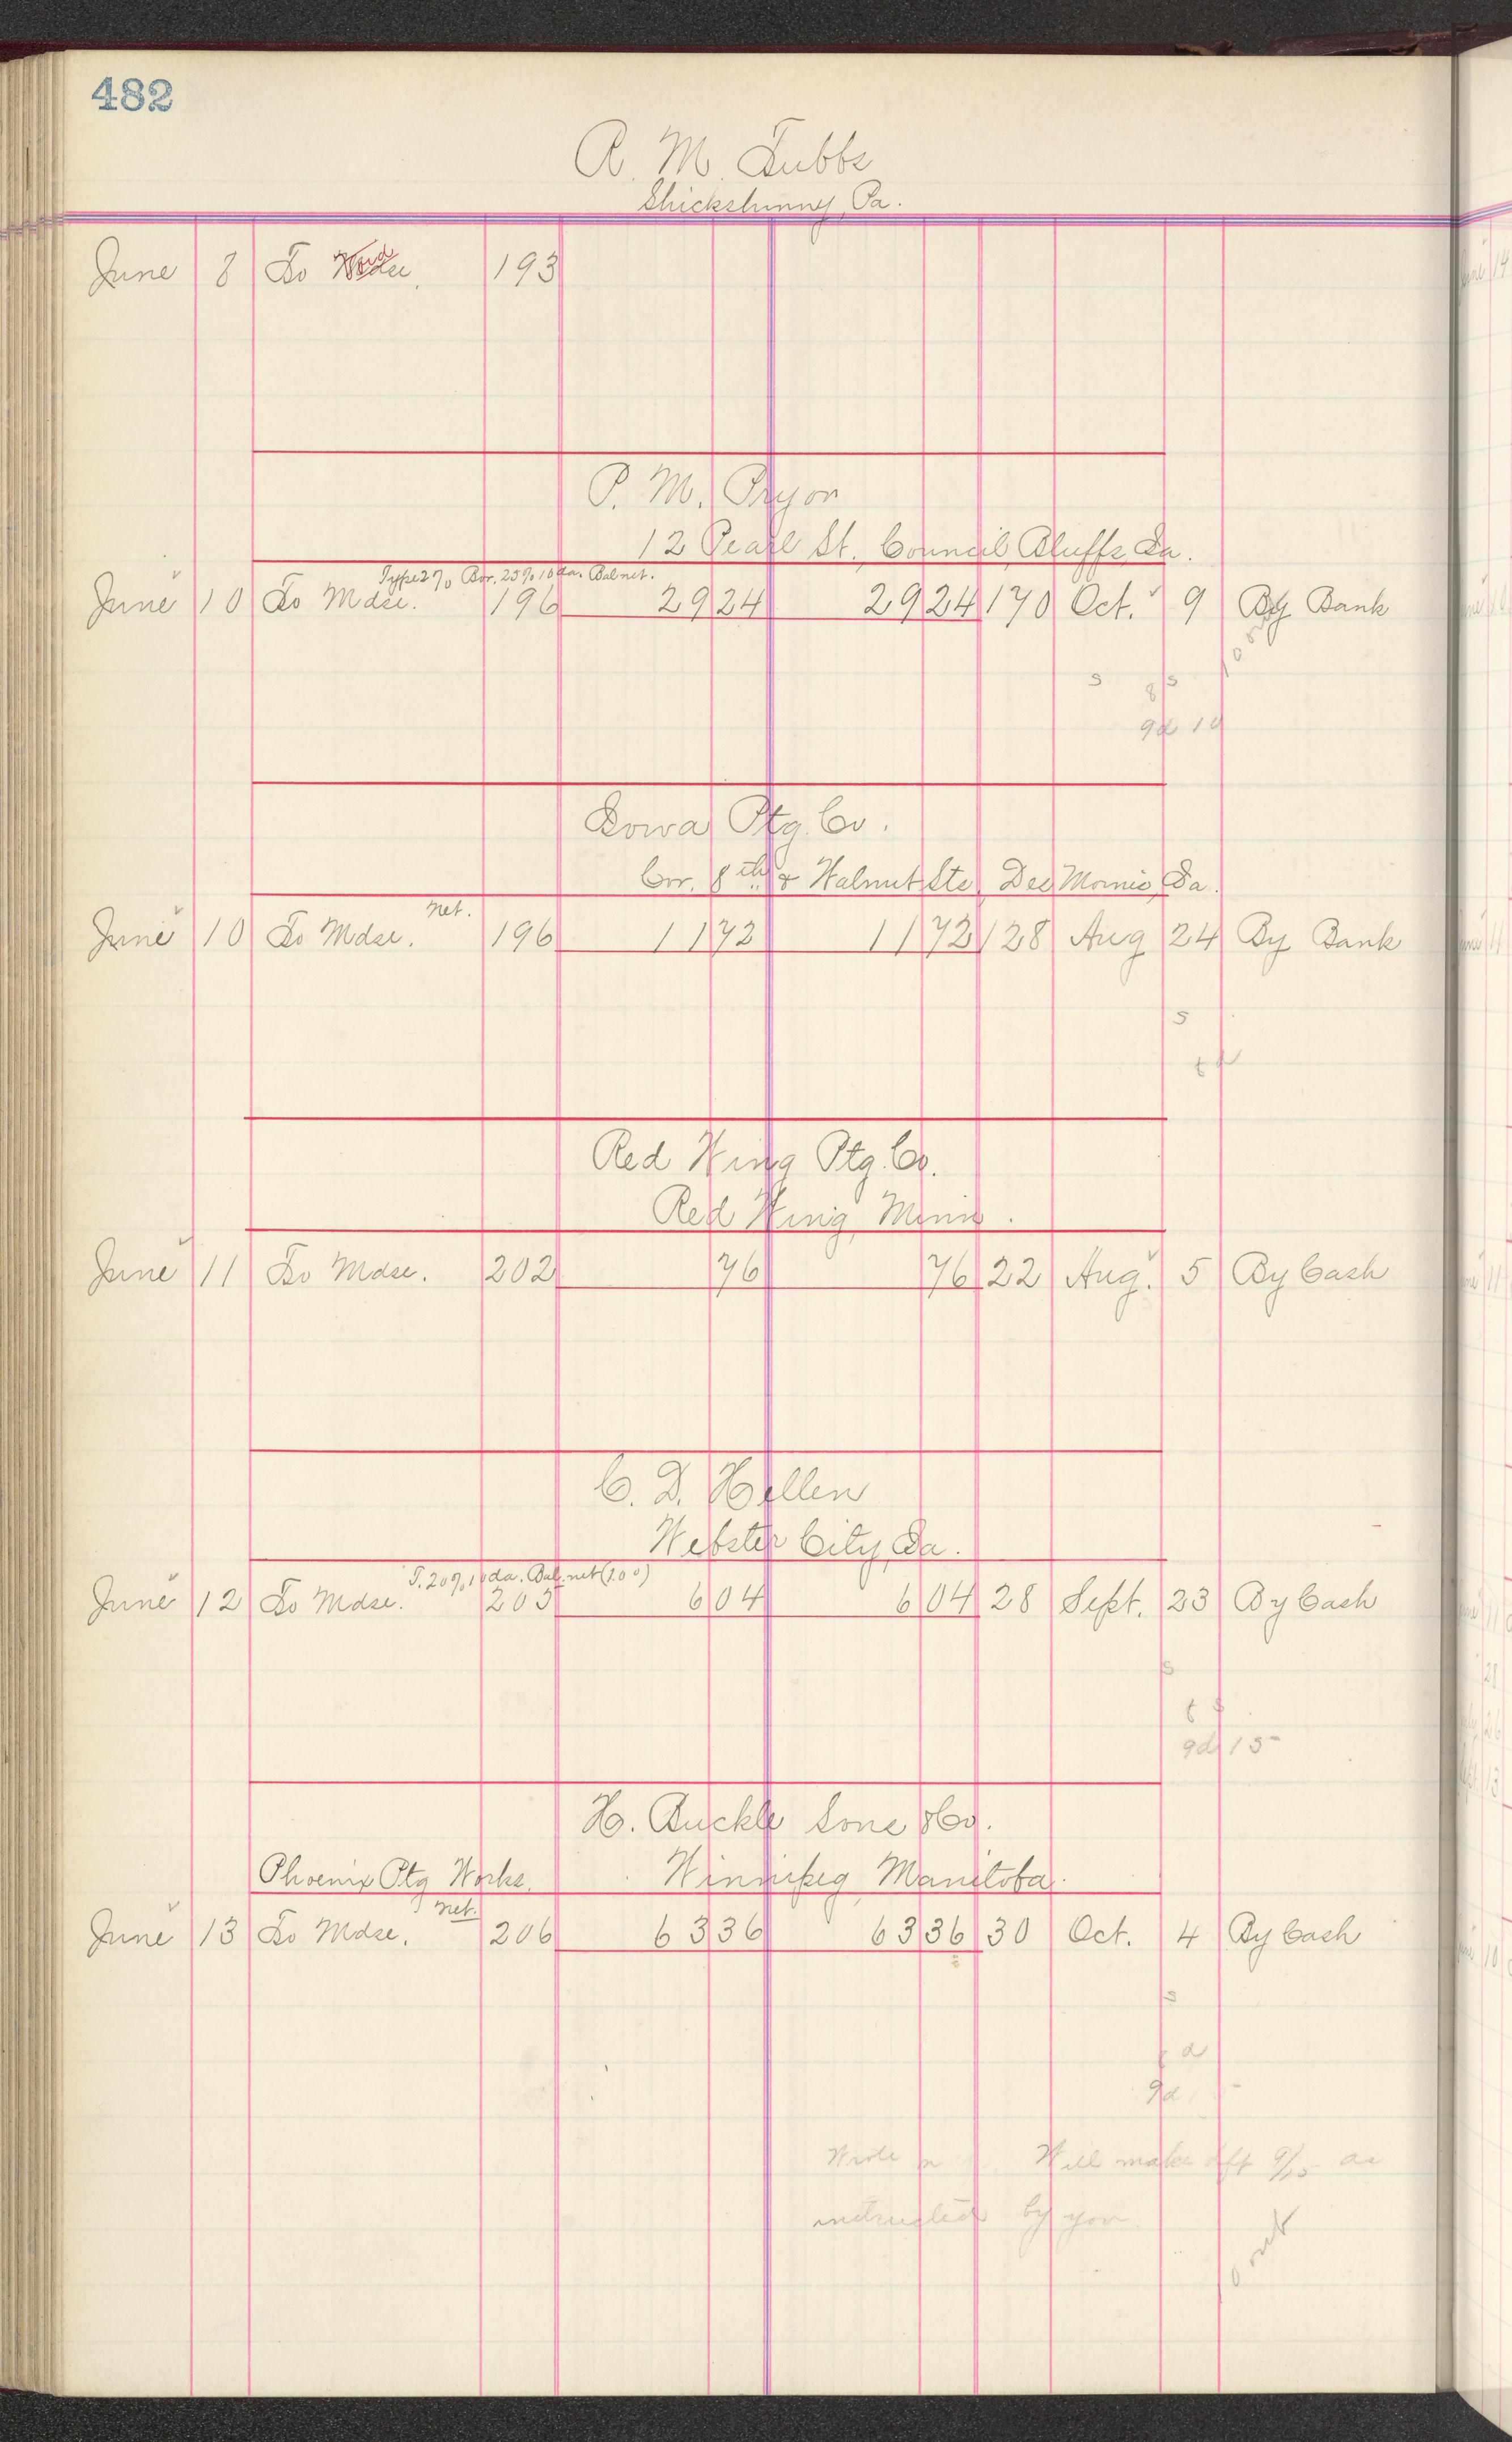 482
R. M. Tubbs
Shickshinny, Pa.
June 8 To Mdse. Void 193
P. M. Pryor
12 Pearl St., Council Bluffs, Ia.
Type 2% Bor. 25% 10 da. Bal net.
June 10 To Mdse. 196 29 24 29 24 170 Oct. 9 By Bank
s 8 s
9d 10
Iowa Ptg. Co.
Cor. 8th & Walnut Sts, Des Moines, Ia.
net.
June 10 To Mdse. 196 11 72 11 72 128 Aug 24 By Bank
s
Red Wing Ptg. Co.
Red Wing, Minn.
June 11 To Mdse. 202 76 76 22 Aug. 5 By Cash
C. D. Hellen
Webster City, Ia.
T. 20% 10 da. Bal. net (1.00)
June 12 To Mdse. 203 6 04 6 04 28 Sept. 23 By Cash
s
9d 15
H. Buckle Sons & Co.
Phoenix Ptg Works. Winnipeg Manitoba.
net.
June 13 To Mdse. 206 63 36 63 36 30 Oct. 4 By Cash
s
9d
Wrote Will make dft 9/15 as
instructed by you.